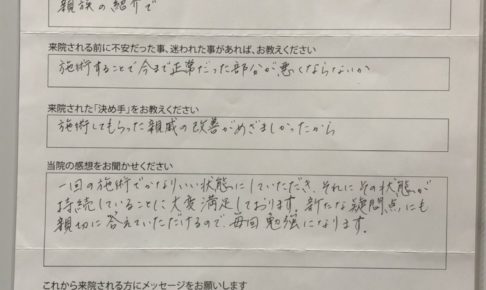 親族の紹介で
来院される前に不安だった事、迷われた事があれば、お教えください
施術することで今まで正常だった部分が悪くならないか
来院された「決め手」をお教えください
施術してもらった親戚の改善がめざましかったから
当院の感想をお聞かせください
一回の施術でかなりいい状態にしていただき、それにその状態が
持続していることに大変満足しております。新たな疑問点にも
親切に答えていただけるので、毎回勉強になります。
これから来院される方にメッセージをお願いします